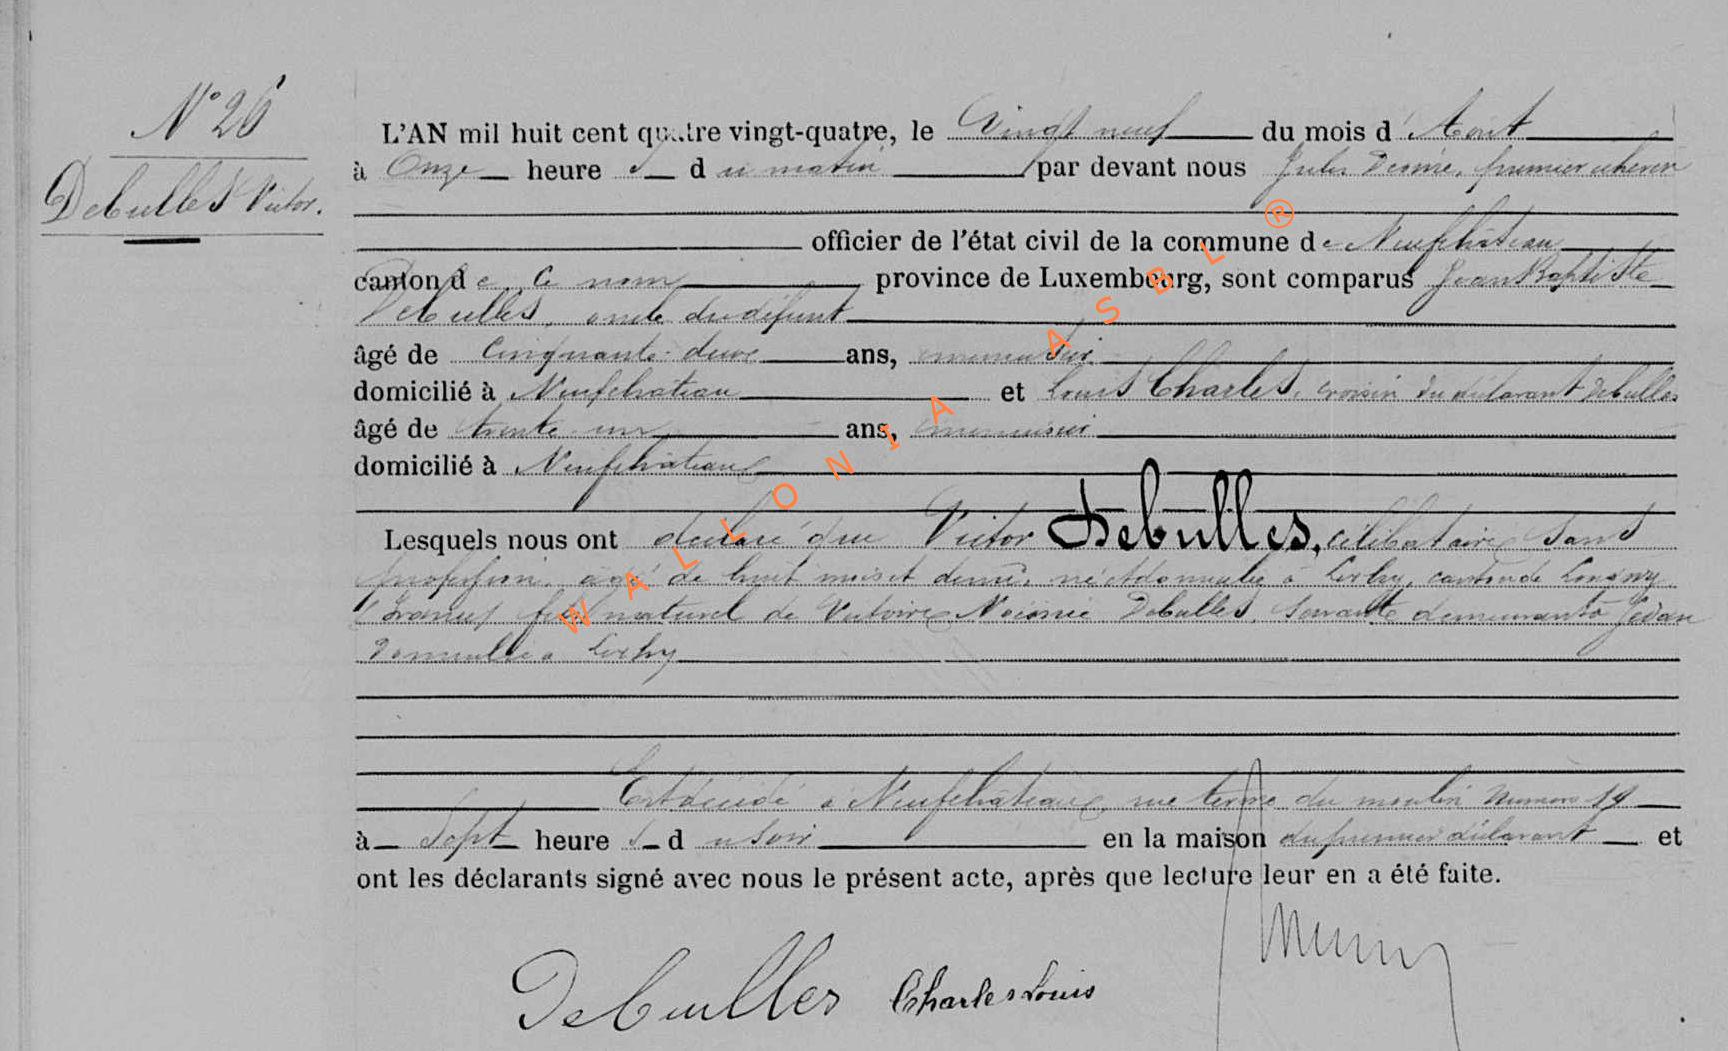 N° 26
Debulles Victor.
L'AN mil huit cent quatre vingt-quatre, le Vingt neuf du mois d'Août
à Onze heures du matin par devant nous Jules, premier échevin
officier de l'état civil de la commune de Neufchâteau
canton de ce nom province de Luxembourg, sont comparus Jean Baptiste
Debulles, oncle du défunt
âgé de Cinquante-deux ans, menuisier
domicilié à Neufchâteau et Louis Charles, voisin du déclarant Debulles
âgé de trente un ans, menuisier
domicilié à Neufchâteau
Lesquels nous ont déclaré que Victor Debulles, célibataire sans
profession, âgé de huit mois et demi, né et domicilié à canton de
(France) fils naturel de Victoire Debulles, servante demeurant à
Domiciliée à
Est décédé à Neufchâteau, rue terme du moulin numéro 19
à Sept heures du soir en la maison du premier déclarant et
ont les déclarants signé avec nous le présent acte, après que lecture leur en a été faite.
Debulles Charles Louis
WALLONIA ASBL ®